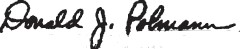 Donald J. Polmann